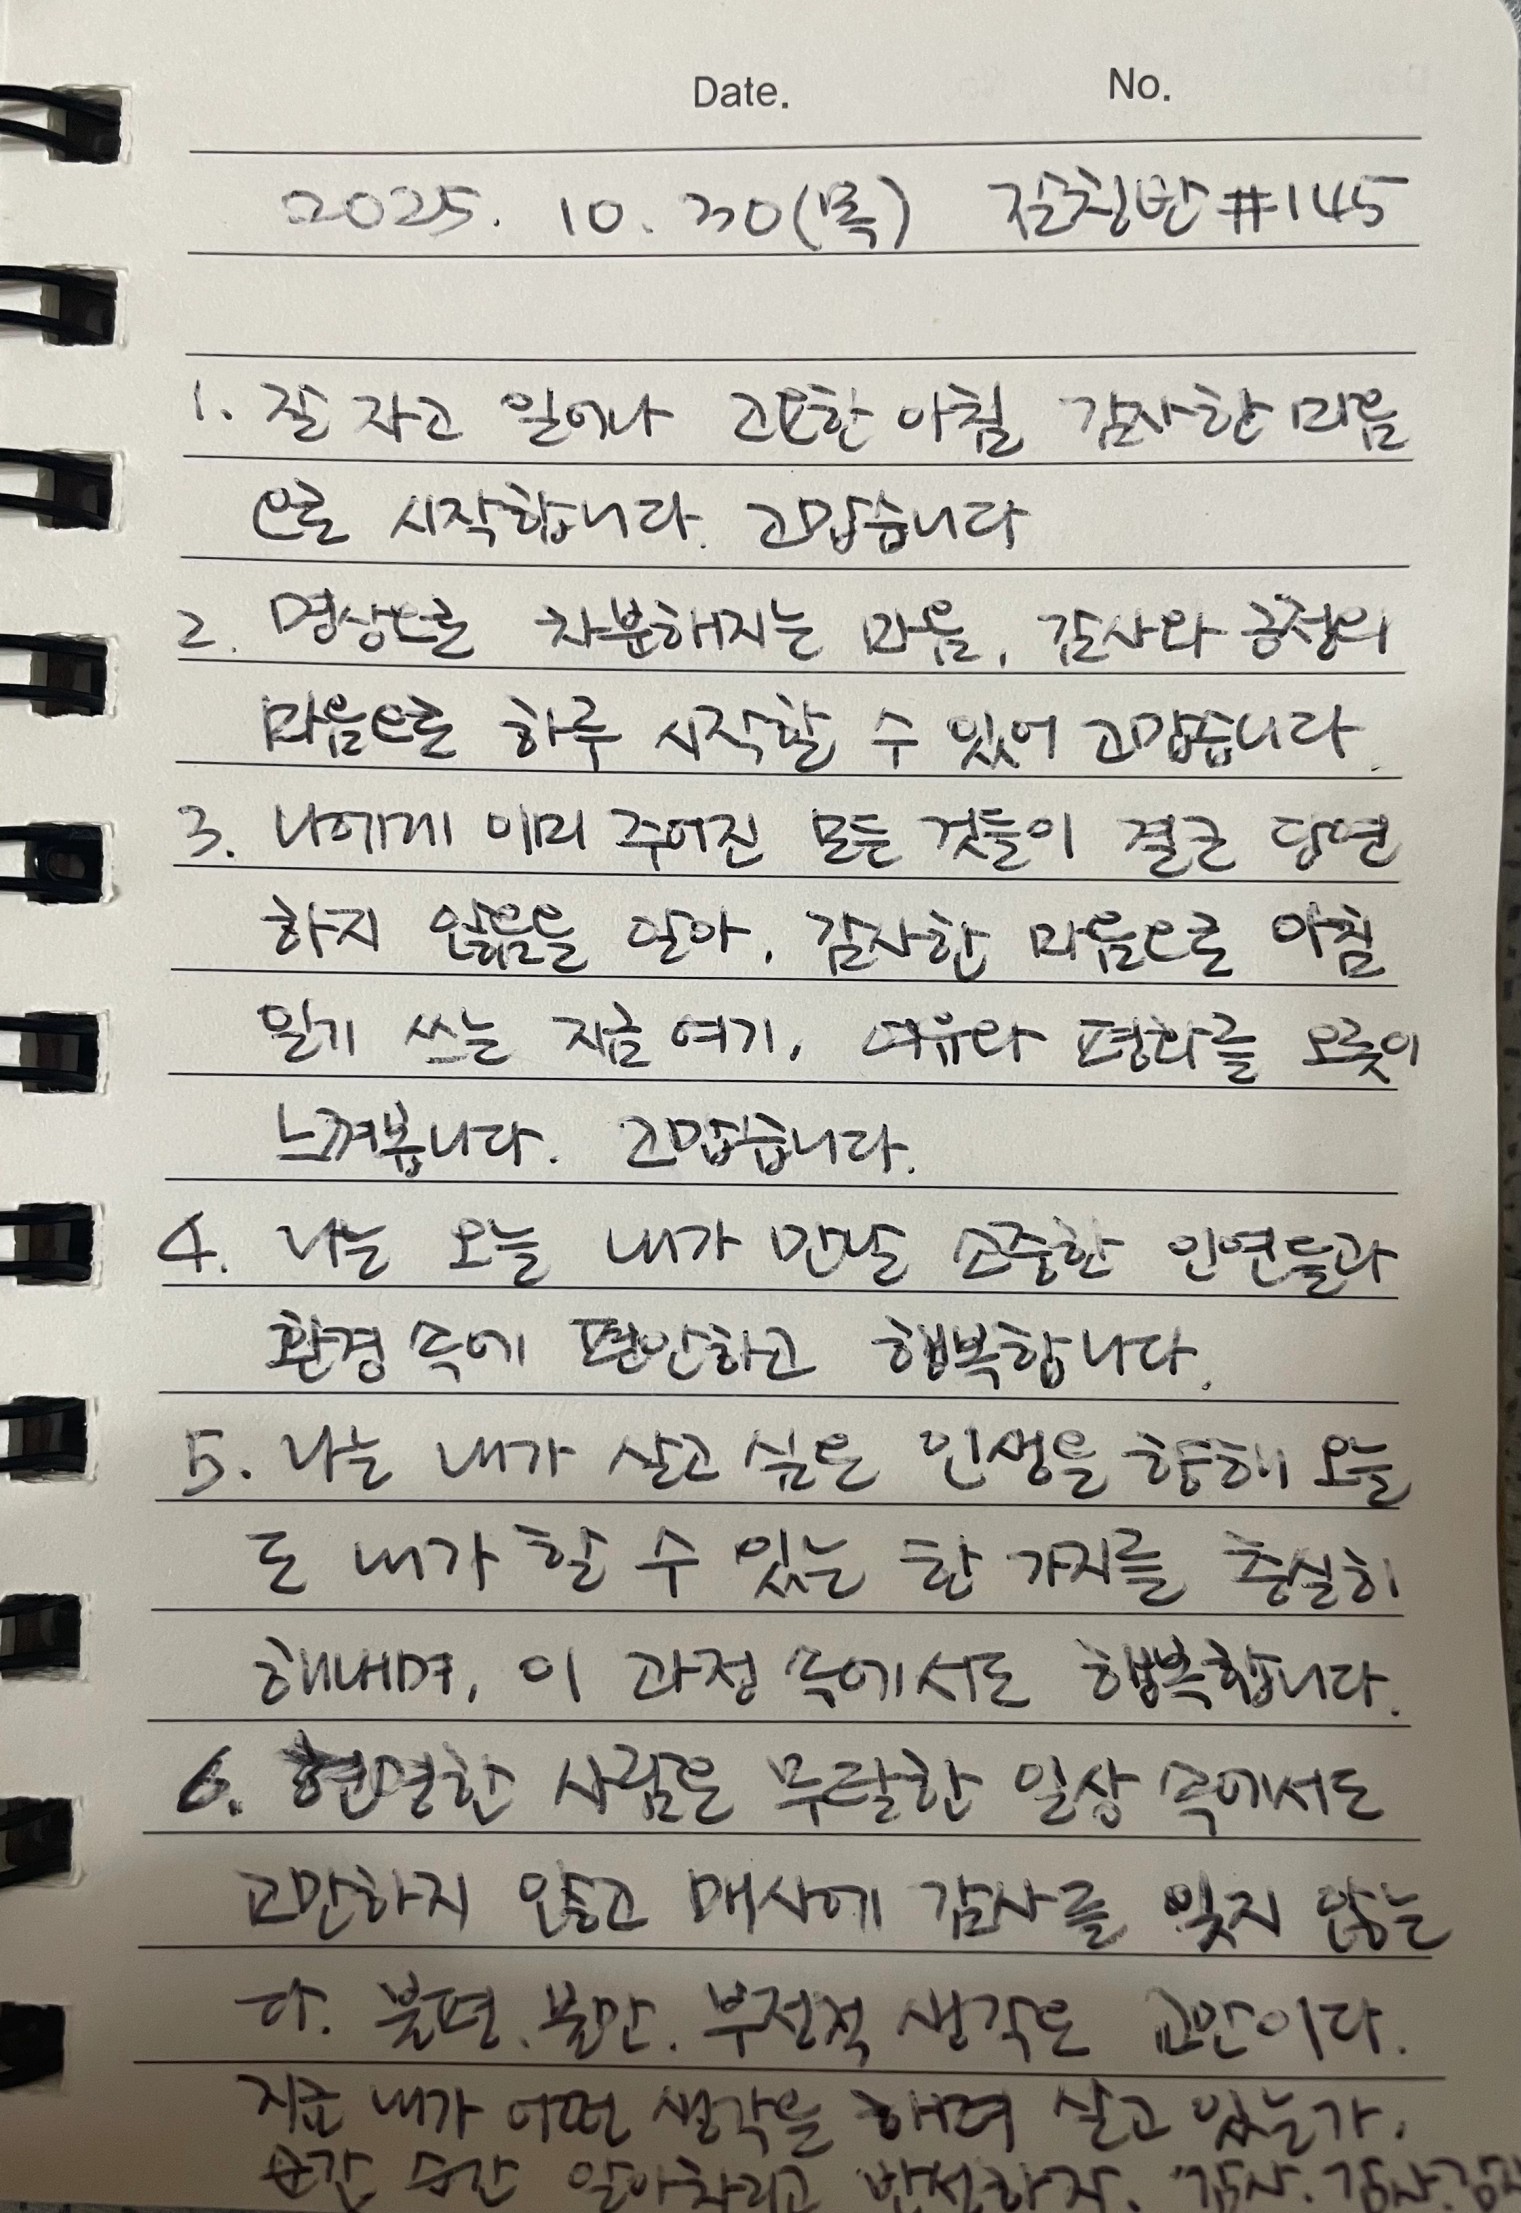 Date. No.
2025. 10. 30(목) 잘칭반 #145
1. 잘 자고 일어나 고요한 아침 감사한 마음
으로 시작합니다. 고맙습니다
2. 명상으로 차분해지는 마음, 감사와 긍정의
마음으로 하루 시작할 수 있어 고맙습니다.
3. 나에게 이미 주어진 모든 것들이 결코 당연
하지 않음을 알아, 감사한 마음으로 아침
일기 쓰는 지금 여기, 여유와 평화를 오롯이
느껴봅니다. 고맙습니다.
4. 나는 오늘 내가 만날 소중한 인연들과
환경 속에 편안하고 행복합니다.
5. 나는 내가 살고 싶은 인생을 향해 오늘
도 내가 할 수 있는 한 가지를 충실히
해내며, 이 과정 속에서도 행복합니다.
6. 현명한 사람은 무탈한 일상 속에서도
교만하지 않고 매사에 감사를 잊지 않는
다. 불편. 불만. 부정적 생각은 교만이다.
지금 내가 어떤 생각을 하며 살고 있는가.
순간 순간 알아차리고 반성하자. 감사. 감사. 감사